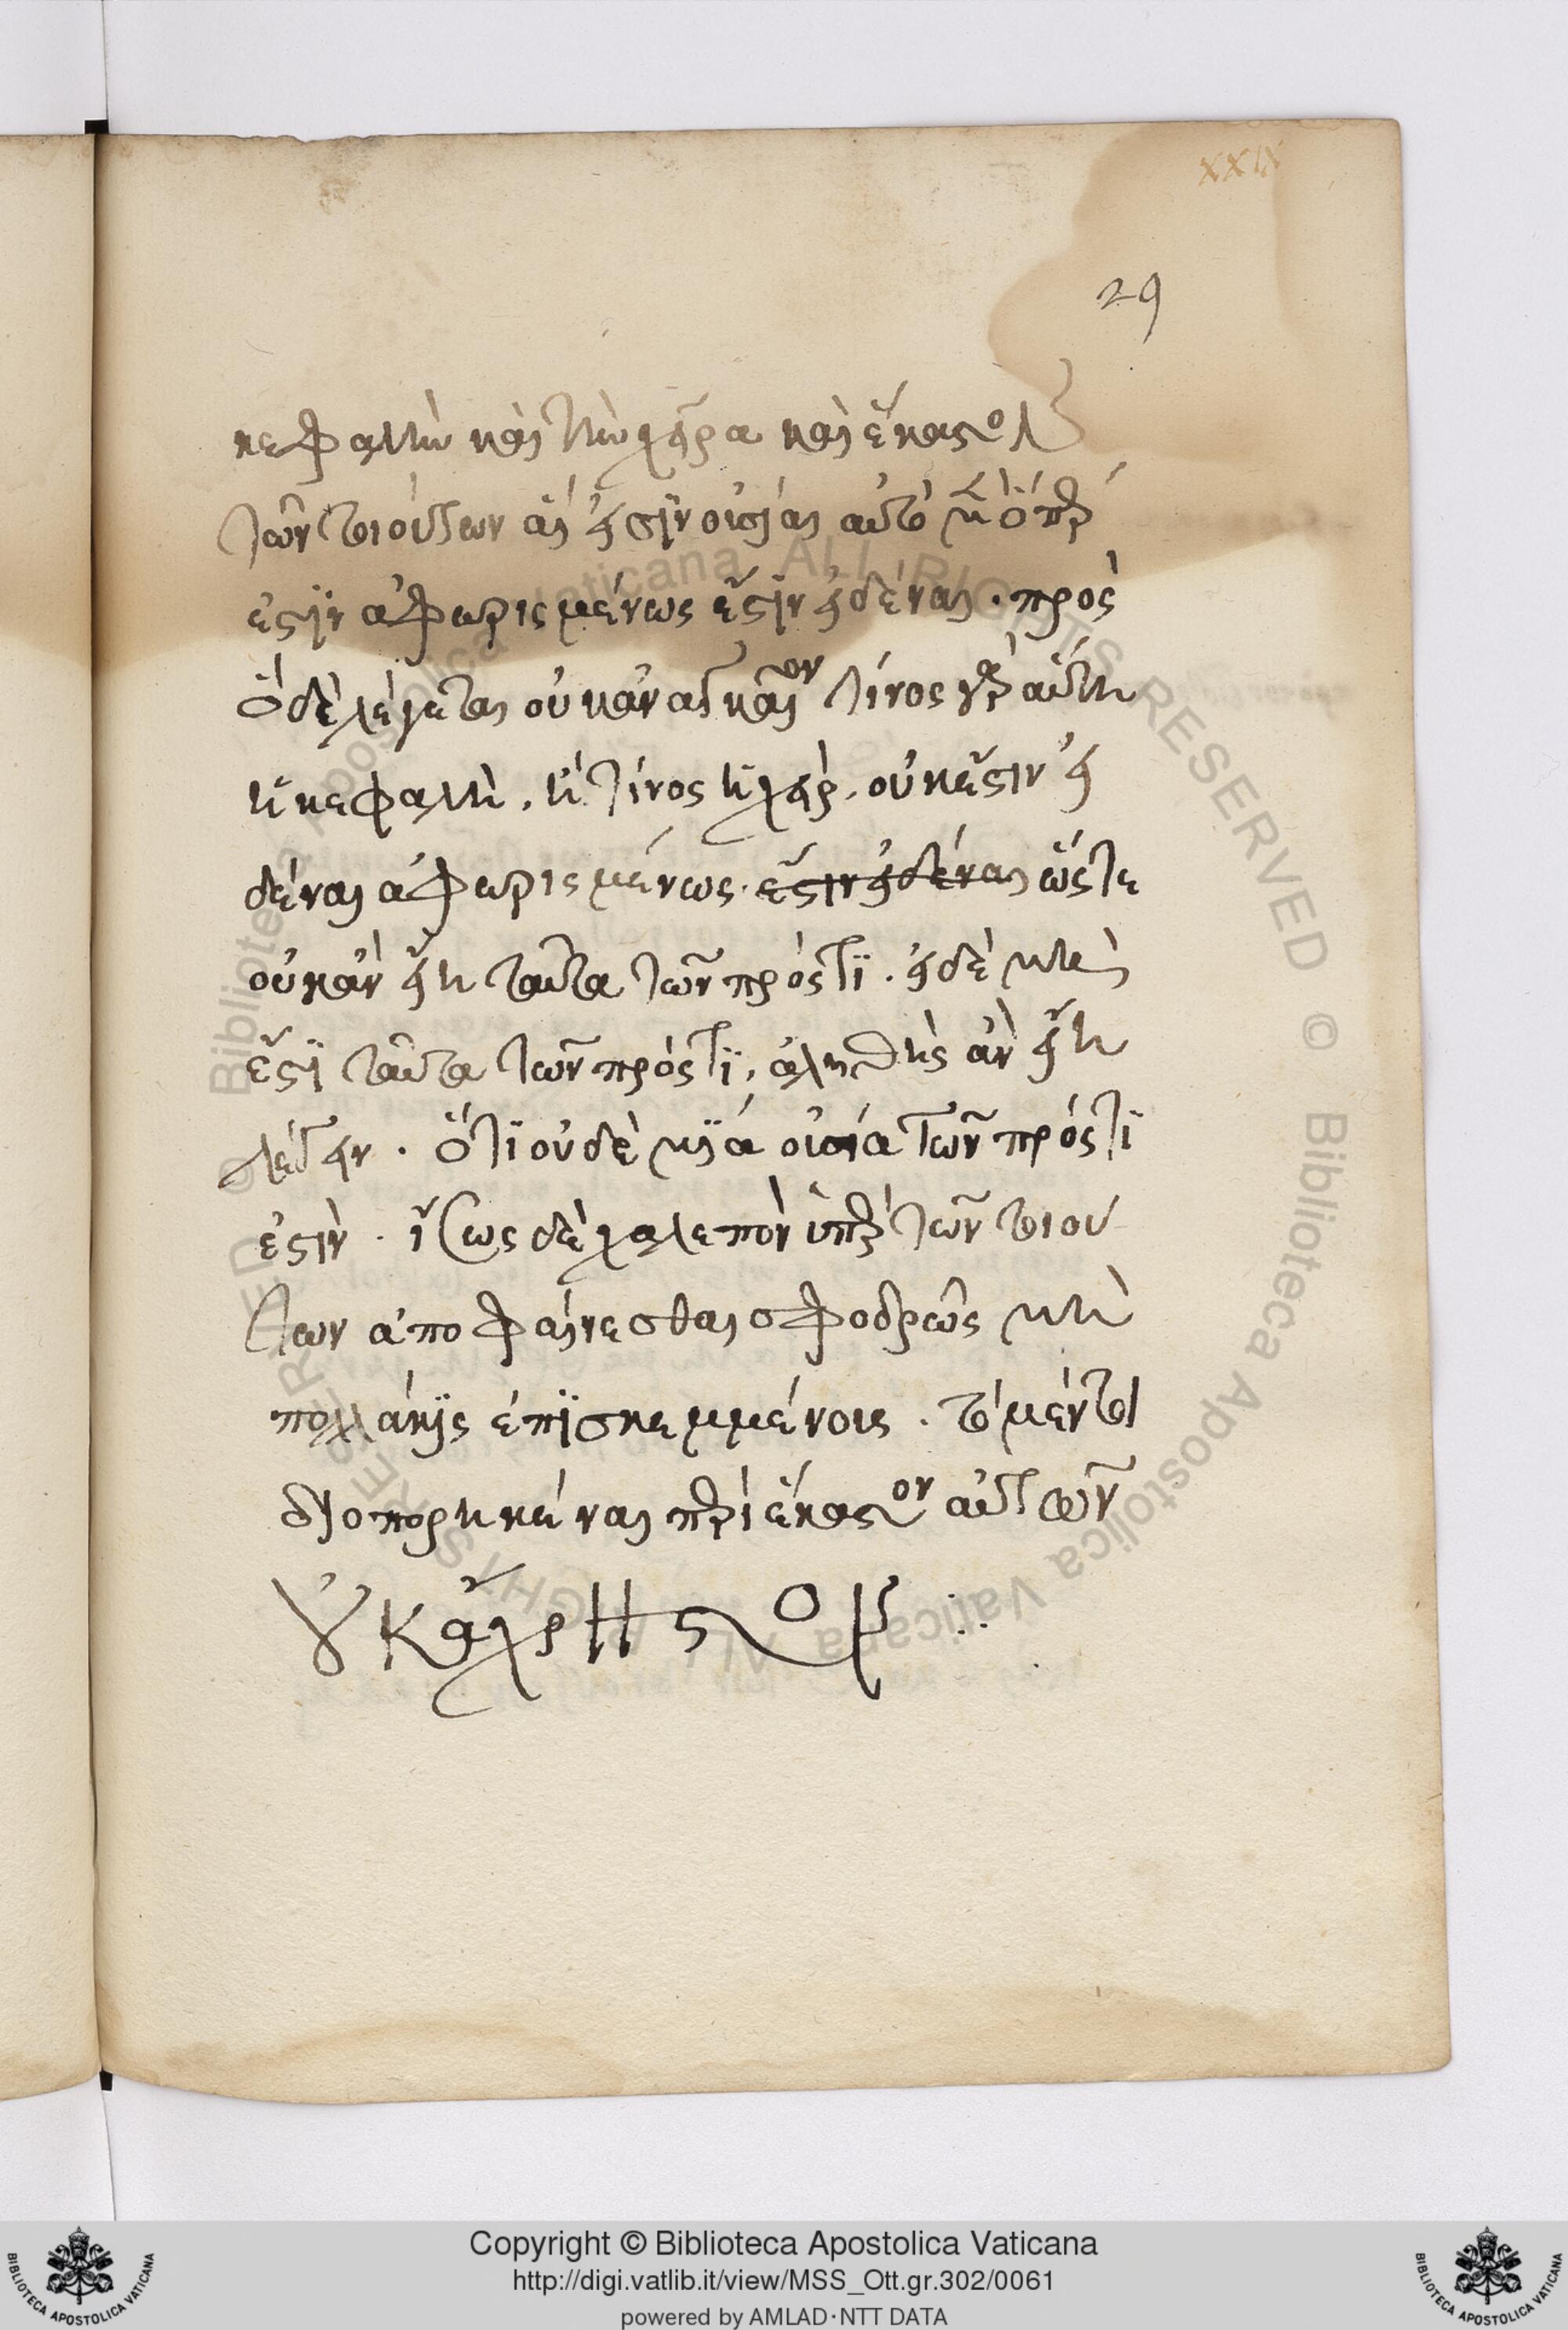 XXIX
29
κεφαλὴν καὶ τὴν χεῖρα καὶ ἕκαστον
τῶν τοιούτων αἵ εἰσϊν οὐσίαι αὐτὸ μὲν ὅπερ
ἐστῒν ἀφωρισμένως ἔστϊν εἰδέναι · πρὸς
ὃ δὲ λέγεται οὐκ ἀναγκαῖον τίνος γὰρ αὕτη
ἡ κεφαλὴ, ἢ τίνος ἡ χεὶρ, οὐκ ἔστιν εἰ
δέναι ἀφωρισμένως · ἔστιν εἰδέναι ὥστε
οὐκ ἂν εἴη ταῦτα τῶν πρός τϊ · εἰ δὲ μή
ἐστϊ ταῦτα τῶν πρός τϊ, ἀληθὴς ἂν εἴη
λέγειν · ὅτϊ οὐδὲ μϊά οὐσία τῶν πρός τϊ
ἐστιν · ἴσως δὲ χαλεπὸν ὑπὲρ τῶν τοιού
των ἀποφαίνεσθαι σφοδρῶς μὴ
πολλάκϊς ἐπϊσκεμμένοις · τὸ μέντοι
διηπορηκέναι περὶ ἕκαστον αὐτῶν
οὐκ ἄχρηστον ∴
Copyright © Biblioteca Apostolica Vaticana
http://digi.vatlib.it/view/MSS_Ott.gr.302/0061
powered by AMLAD·NTT DATA